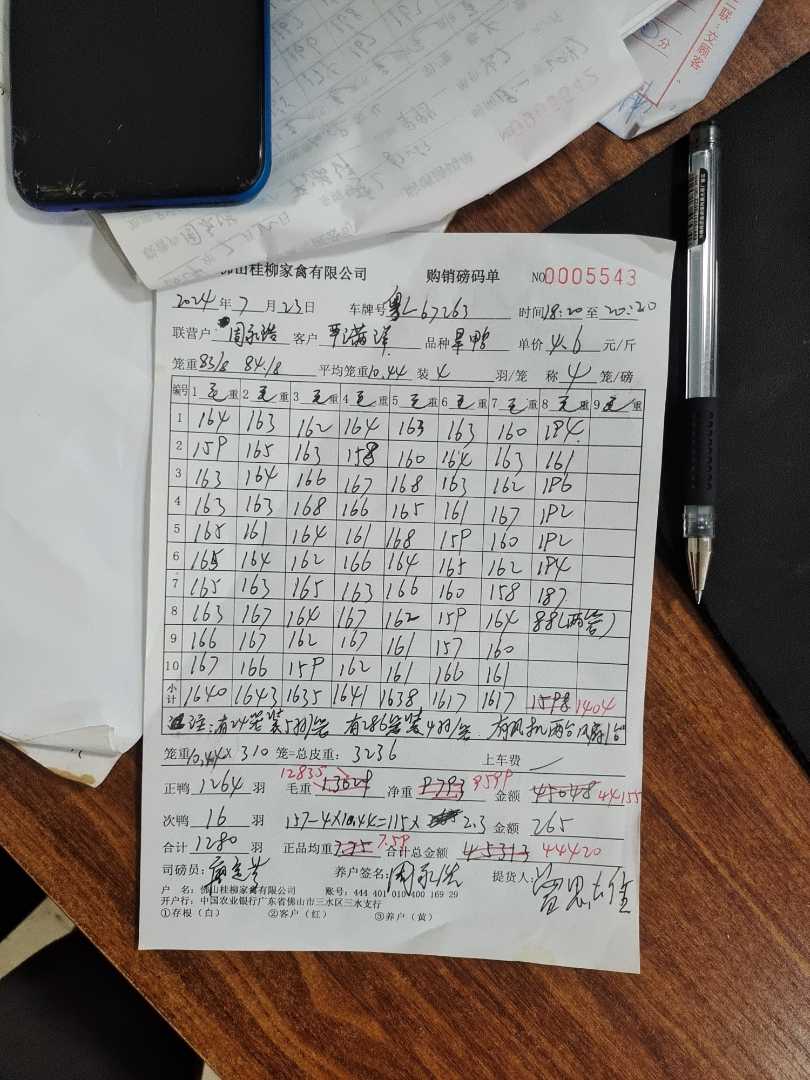 佛山桂柳家禽有限公司 购销磅码单 NO0005543
2024年7月23日 车牌号粤L67263 时间18:20至20:20
联营户 客户 品种 单价4.6元/斤
笼重83/8 84.1/8 平均笼重10.44 装4羽/笼 称4笼/磅
编号 1毛重 2毛重 3毛重 4毛重 5毛重 6毛重 7毛重 8毛重 9毛重
1 164 163 162 164 163 163 160 194
2 159 165 163 158 160 164 163 161
3 163 164 166 167 168 163 162 196
4 163 163 168 166 165 161 167 192
5 165 161 164 161 168 159 160 192
6 165 164 162 166 164 165 162 194
7 165 163 165 163 166 160 158 187
8 163 167 164 167 162 159 164 88(两笼)
9 166 167 162 167 161 157 160
10 167 166 159 162 161 166 161
小计 1640 1643 1635 1641 1638 1617 1617 1598 1404
注:有24笼装5羽/笼 有286笼装4羽/笼 有风机两台
笼重10.44×310笼=总皮重:3236 上车费
正鸭1264羽 毛重13029 12835 净重9793 9599 金额45048 44155
次鸭16羽 157-4×10.44=115× 2.3 金额265
合计1280羽 正品均重7.75 7.59 合计总金额45313 44420
司磅员: 养户签名: 提货人:
户 名:佛山桂柳家禽有限公司 账号:444 401 010 400 169 29
开户行:中国农业银行广东省佛山市三水区三水支行
①存根(白) ②客户(红) ③养户(黄)
二联:交顾客
分